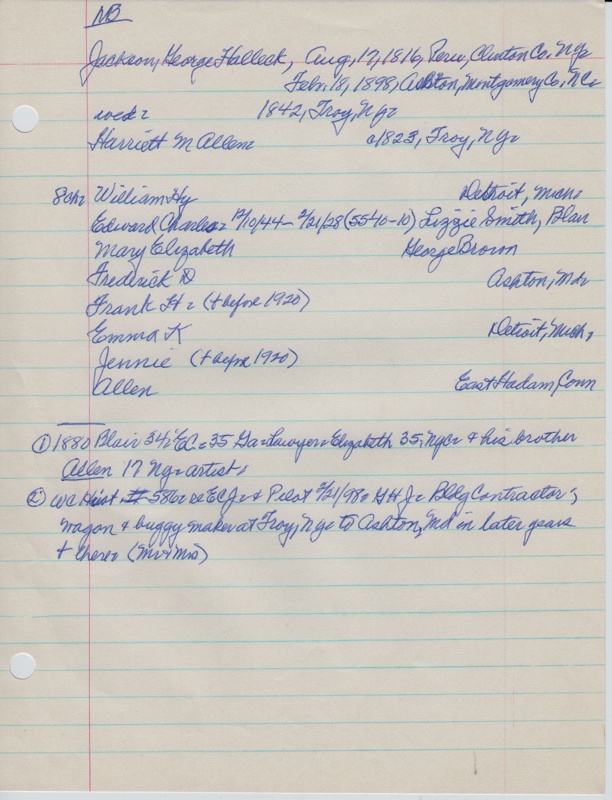 NB
Jackson, George Halleck, Aug. 17, 1816, Peru, Clinton Co. NY
Feb. 18, 1898, Ashton, Montgomery Co, NC
wed: 1842, Troy, NY
Harriett M Allen c1823, Troy, NY
8 ch: William Hy Detroit, Mich
Edward Charles: 12/10/44 - 2/21/28 (5540-10) Lizzie Smith, Blair
Mary Elizabeth George Brown
Frederick D Ashton, Md
Frank H. (+ before 1920)
Emma K Detroit, Mich.
Jennie (+ before 1920)
Allen East Hadam, Conn
① 1880 Blair 34; EC. = 35 Ga = Lawyer = Elizabeth 35, NYC & his brother
Allen 17 NY = artist
② WC Hist 586 = re ECJ = & Pilot 2/21/98 = GHJ = Bldg Contractor;
wagon & buggy maker at Troy, NY = to Ashton, Md in later years
+ there = (Mr & Mrs)